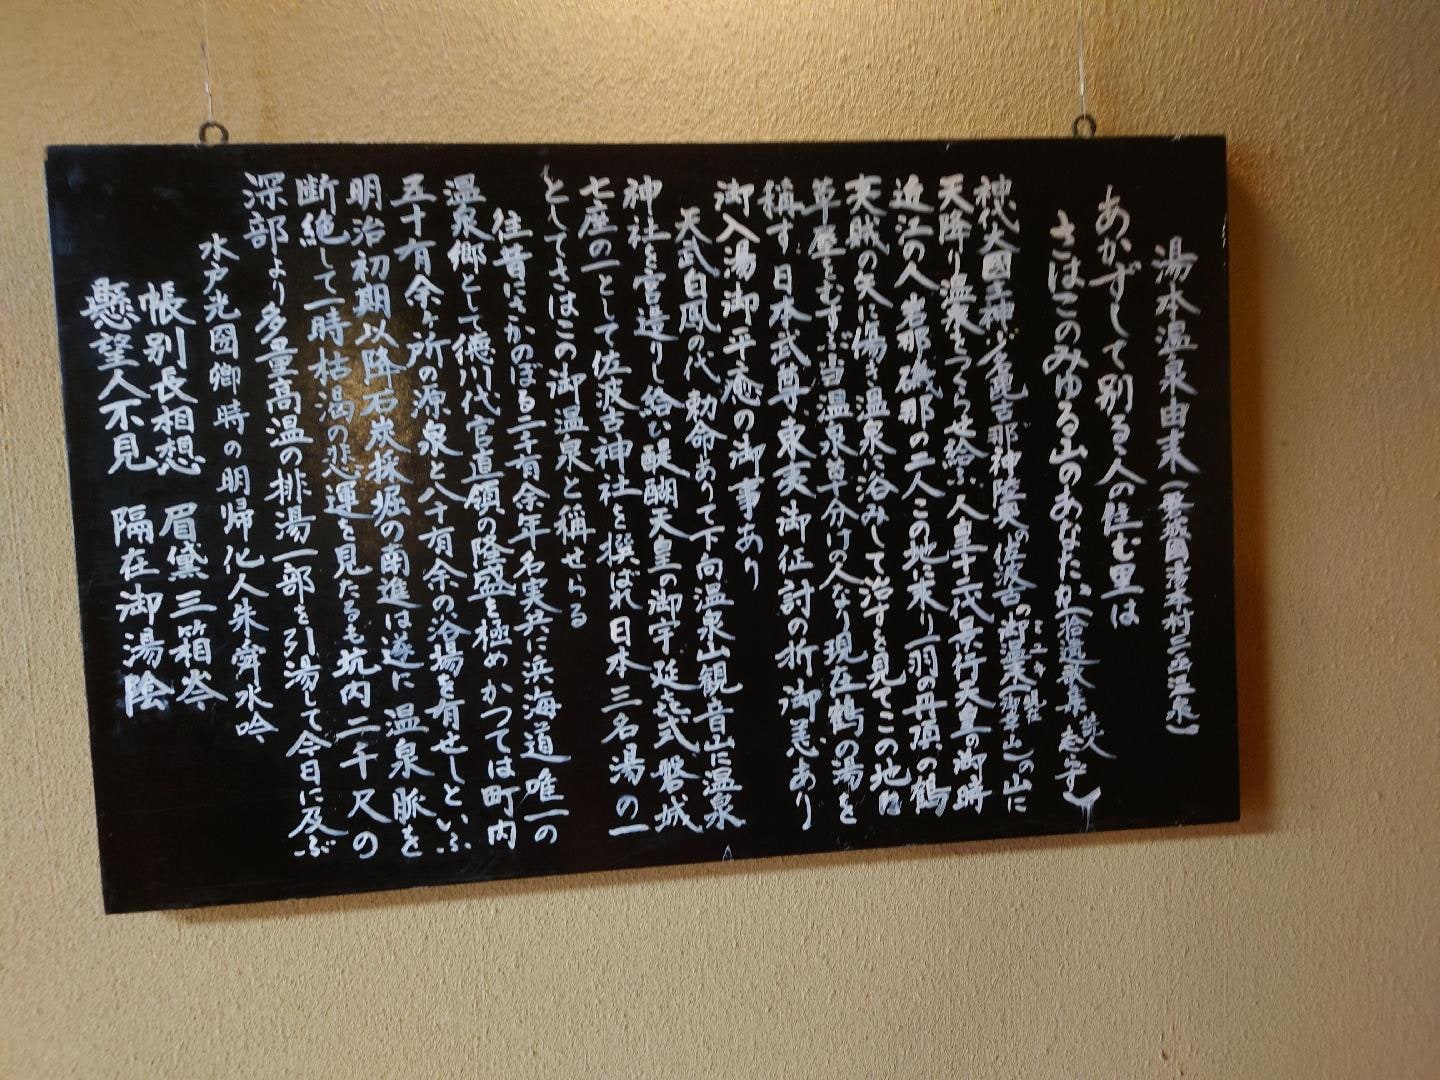 湯本温泉由来(磐城國湯本村三函温泉)
あかずして別るゝ人の住む里は
さはこのみゆる山のあなたか(拾遺歌集 読人知らず)
神代大國主神 少名毘古那神陸奥の佐波古の御湯(御幸山)の山に
天降り温泉をつくらせ給ふ 人皇十二代景行天皇の御時
近江の人岩那磯那の二人この地に来り一羽の丹頂の鶴
夷賊の矢に傷き温泉に浴みして治すを見てこの地に
草座をむすぶ当温泉草分けの人なり現在鶴の湯を
稱す 日本武尊東夷御征討の折御恙あり
御入湯御平癒の御事あり
天武白鳳の代 勅命ありて下向温泉山観音山に温泉
神社を宮造りし給ひ醍醐天皇の御宇延喜式磐城
七座の一として佐波古神社を撰ばれ日本三名湯の一
としてさはこの御温泉と稱せらる
往昔にさかのぼる二千有余年名実共に浜海道唯一の
温泉郷として徳川代官直領の隆盛を極めかつては町内
五十有余ヶ所の源泉と八十有余の浴場を有せしといふ
明治初期以降石炭採掘の南進は遂に温泉脈を
断絶して一時枯渇の悲運を見たるも坑内二千尺の
深部より多量高温の排湯一部を引湯して今日に及ぶ
水戸光國卿時の明帰化人朱舜水吟
帳別長相想 眉黛三箱岑
懸望人不見 隔在御湯陰